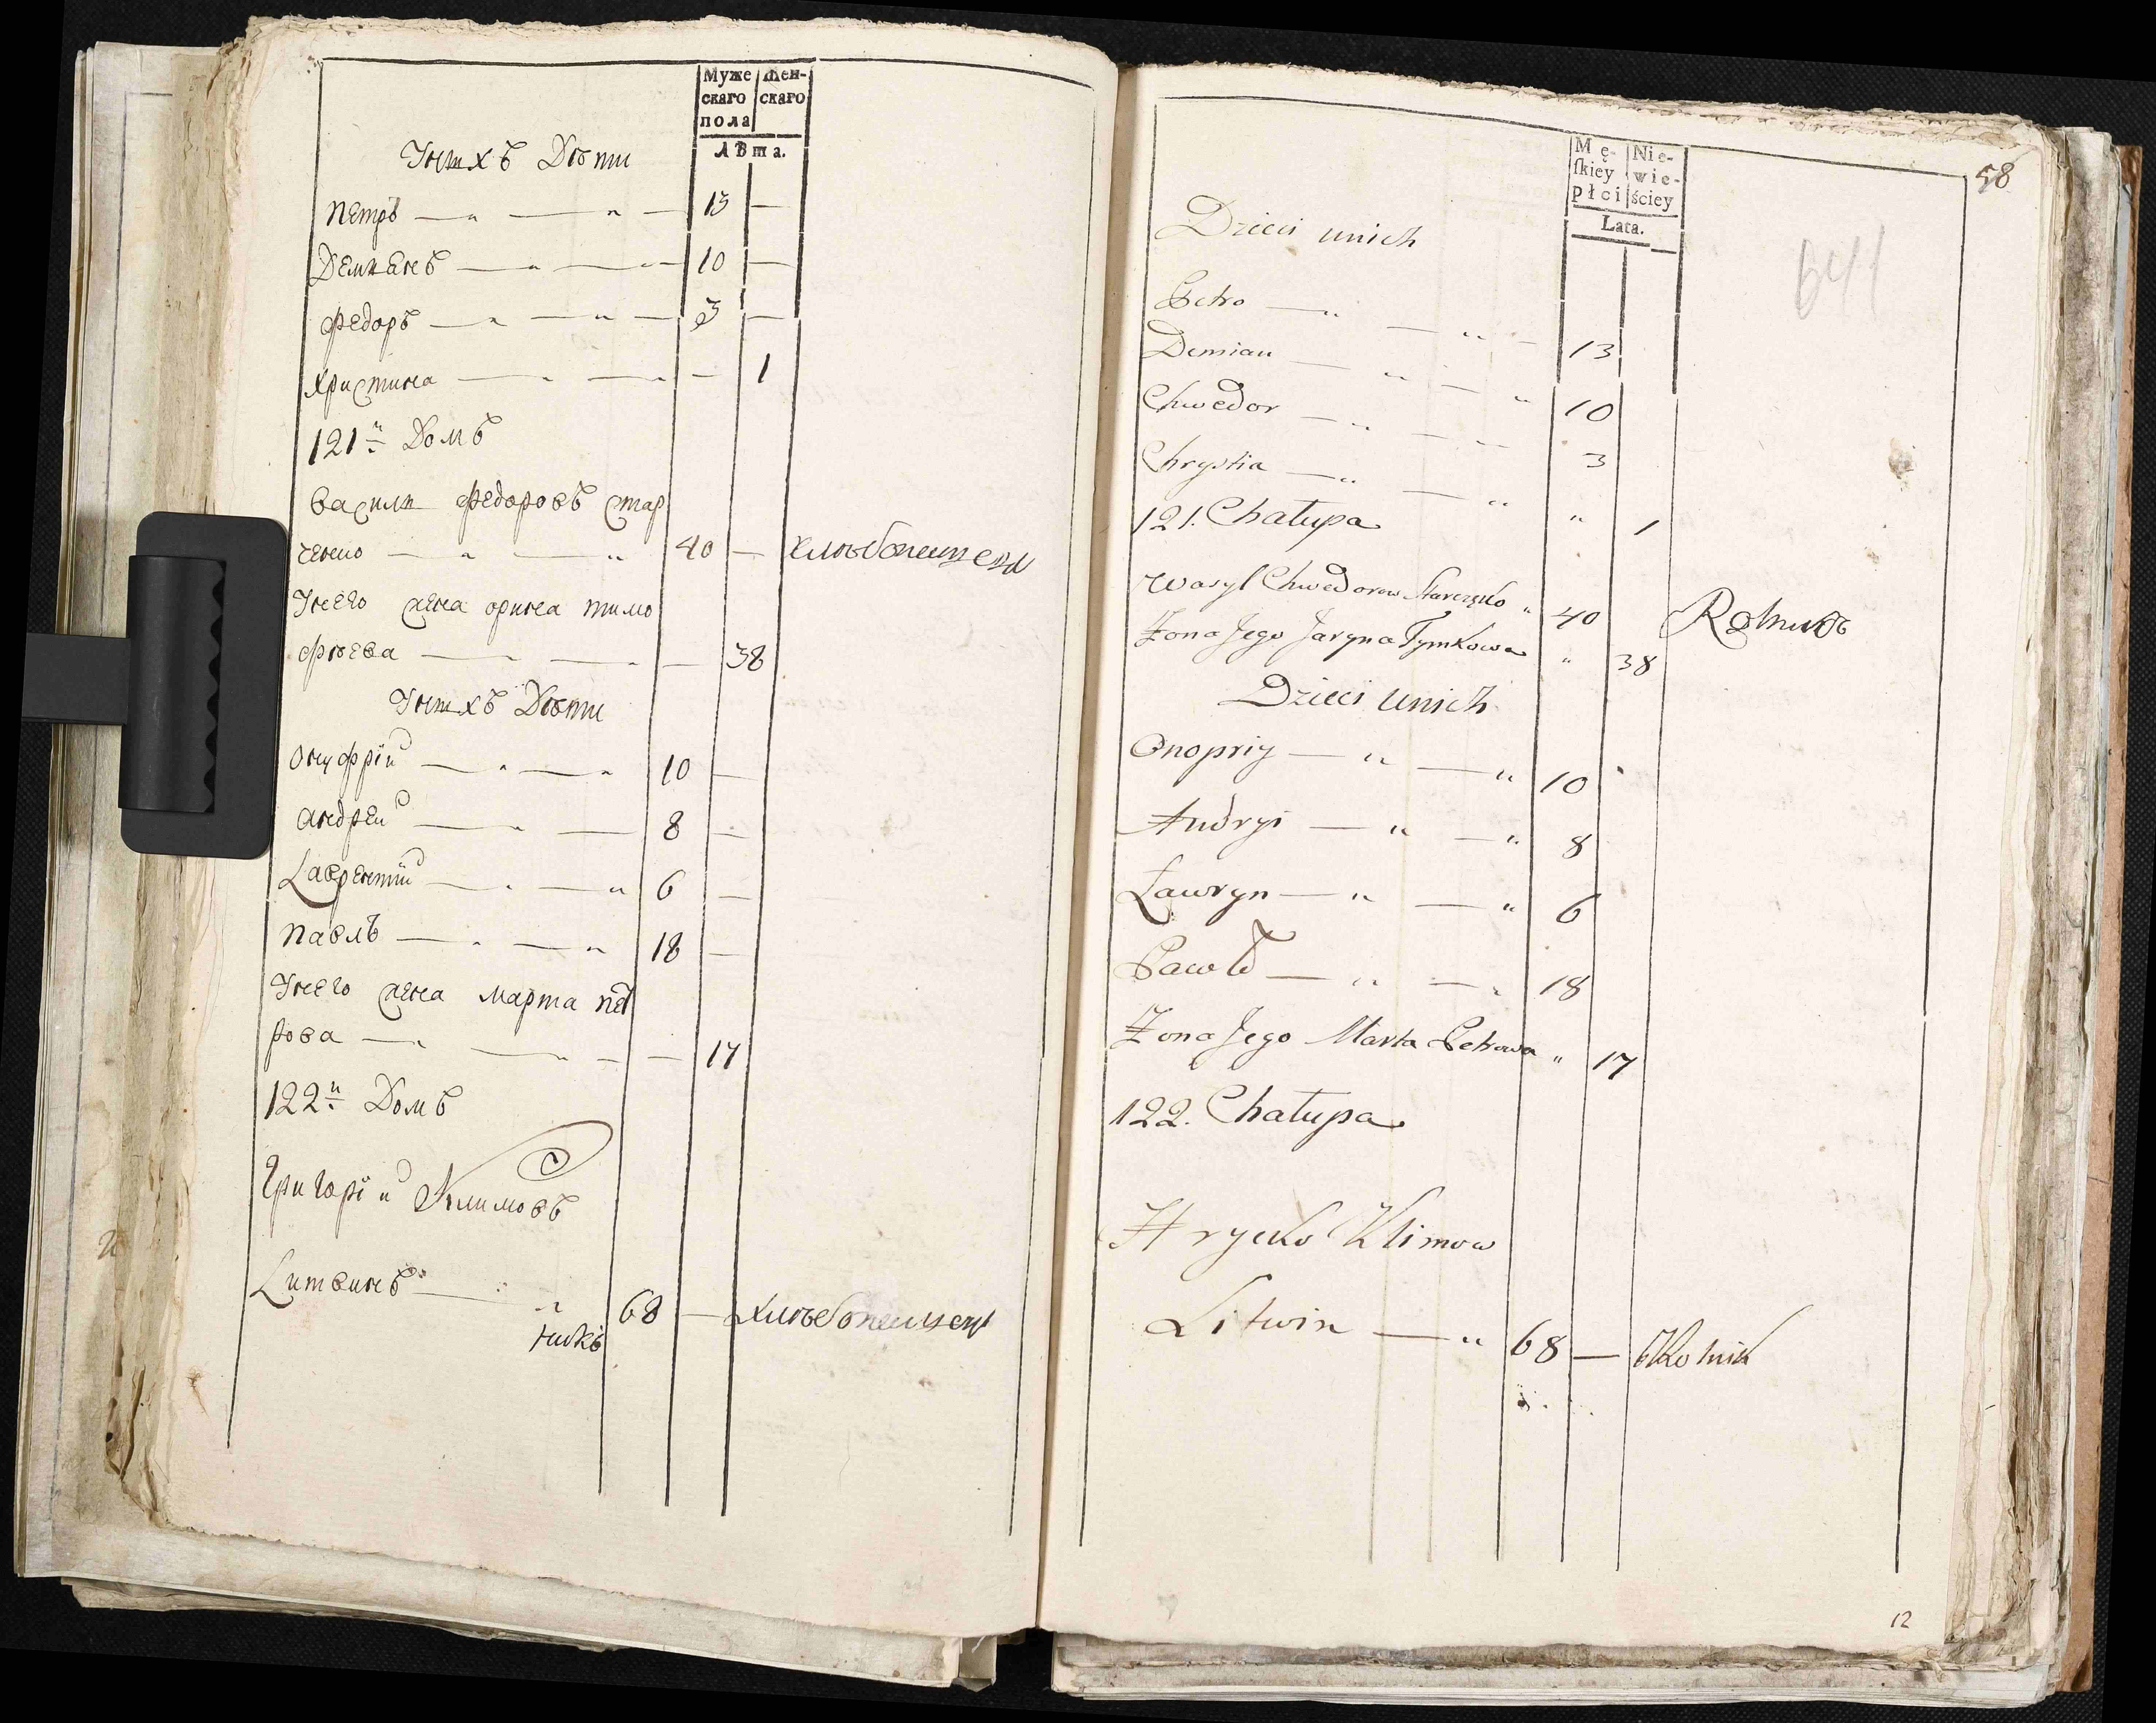 Муже Жен-
скаго скаго
пола
Лѣта.
Унихъ Дѣти
Петръ — „ — „ — 13 —
Демянъ — „ — „ — 10 —
Федоръ — „ — „ — 3 —
Христина — „ — „ — 1
121й Домъ
Василй Федоровъ Стар
ченко — „ — „ 40 — хлѣбопашецъ
Унего жена орина тимо
фѣева — „ — „ — 38
Унихъ Дѣти
Онуфрій — „ — „ 10 —
андрей — „ — 8 —
Лаврентий — „ — „ 6 —
павлъ — „ — „ 18 —
Унего жена марта пет
рова — „ — „ — — 17
122й Домъ
Григорій Климовъ
Литвинъ — „ 68 — хлѣбопашецъ
58
641
Mę- Nie-
ſkiey wie-
płci ściey
Lata.
Dzieci unich
Petro — „ — „ — 13
Demian — „ — „ 10
Chwedor — „ — „ 3
Chrystia — „ — „ „ 1
121. Chałupa
Wasyl Chwedorow Starczęko „ 40 Rolnik
Żona Jego Jaryna Tymkowa „ 38
Dzieci unich
Onopriy — „ — „ 10
Andryi — „ — „ 8
Ławryn — „ — „ 6
Pawło — „ — „ 18
Żona Jego Marta Petrowa „ 17
122. Chałupa
Hrycko Klimow
Litwin — „ 68 — Rolnik
12